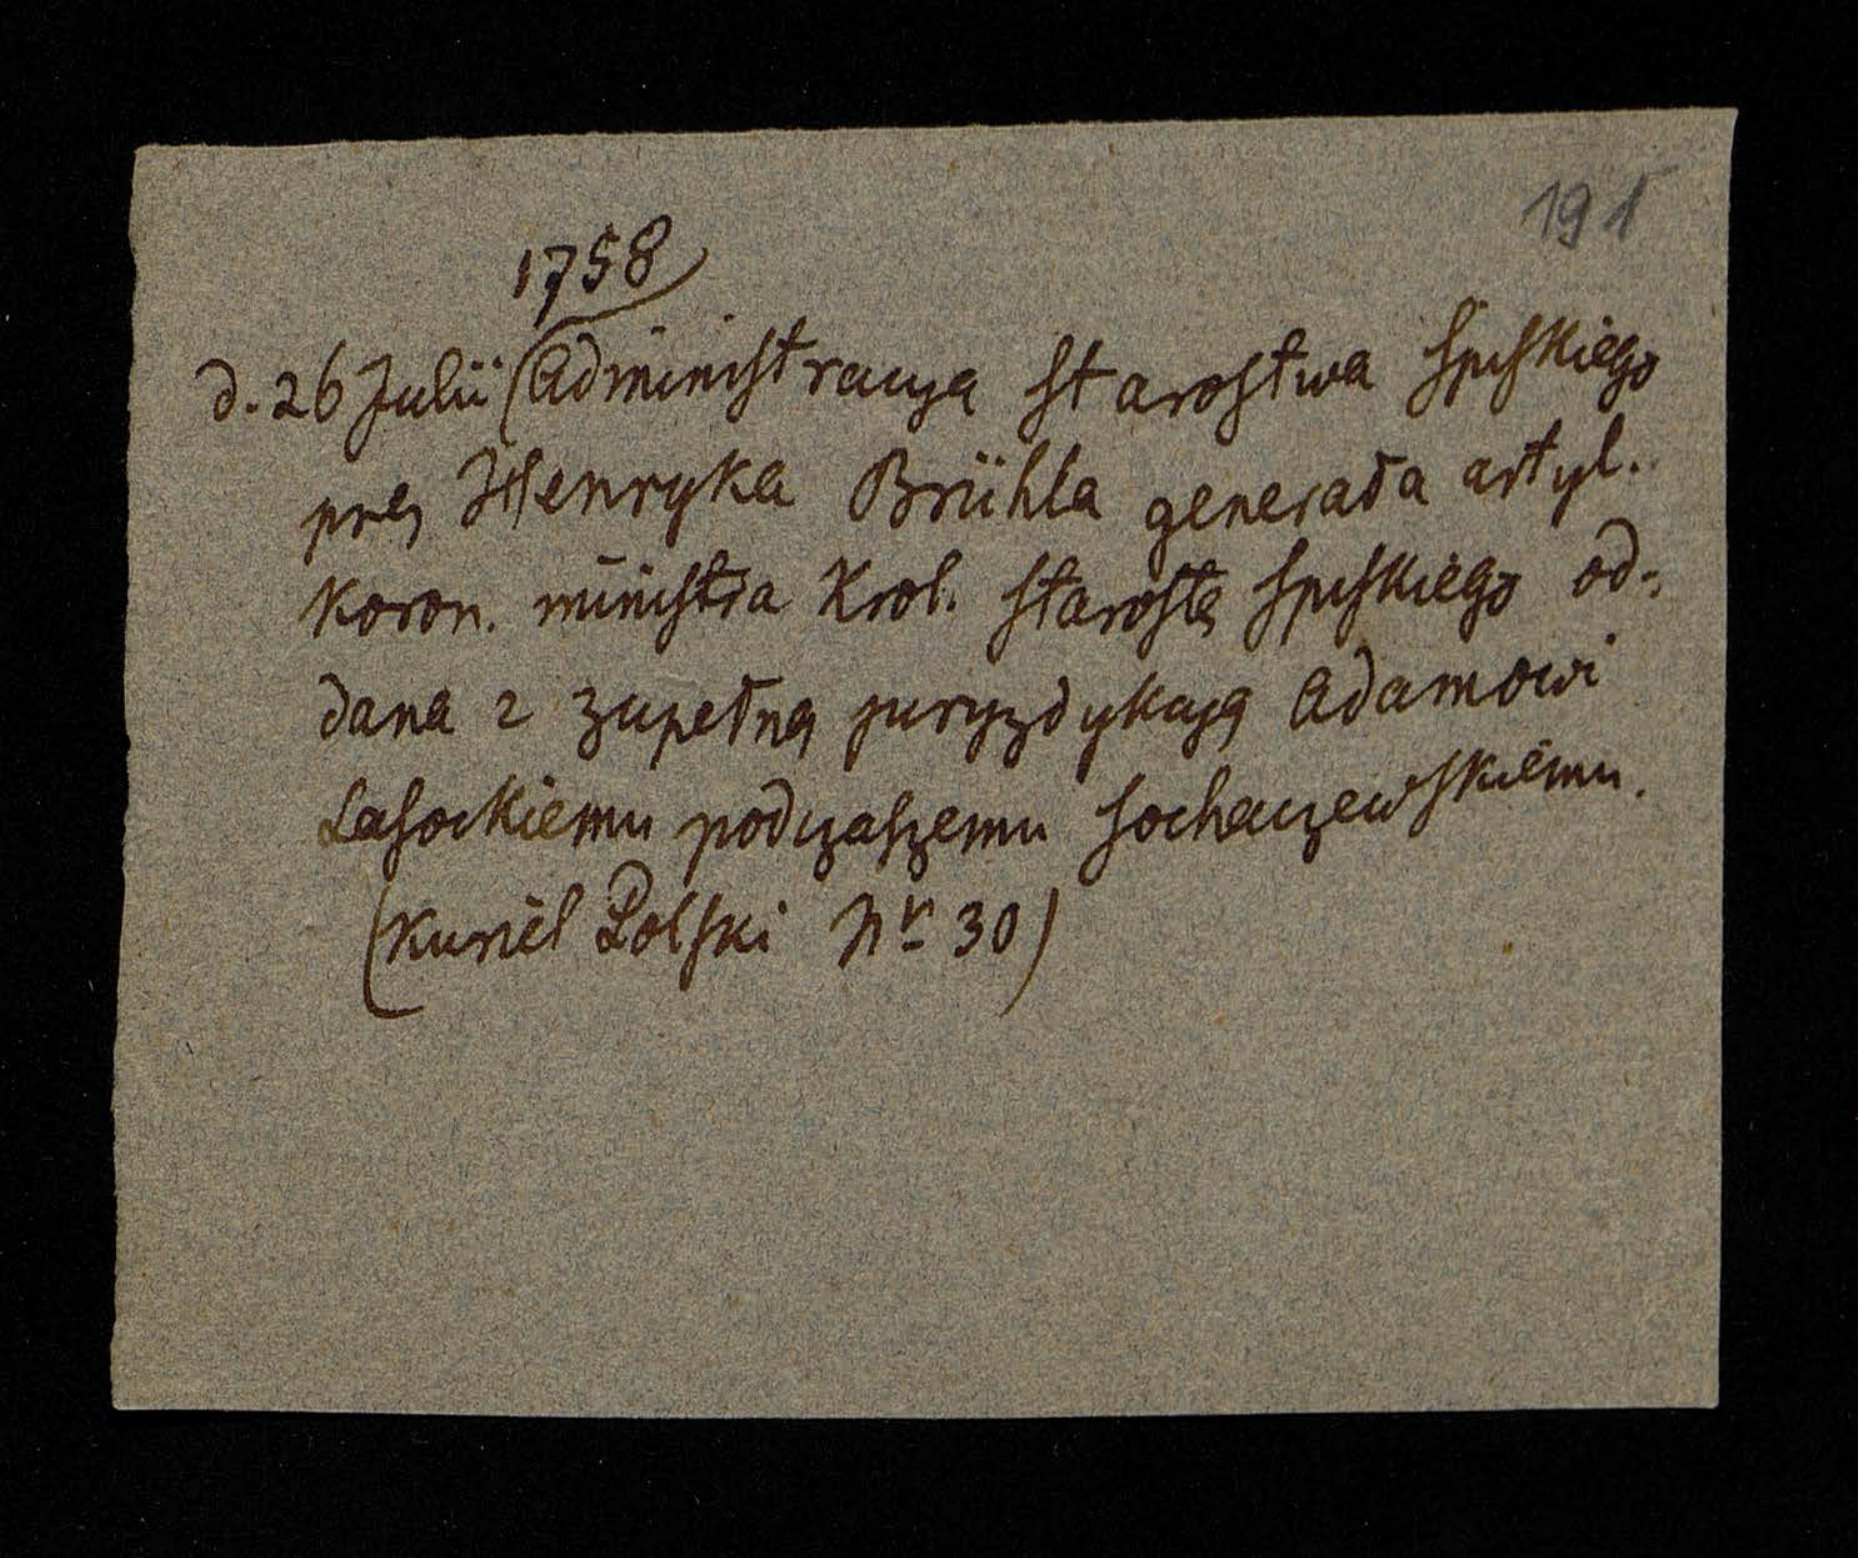 191
1758
d. 26 Julii Administracya starostwa Spiskiego
przez Henryka Brühla generała artyl.
Koron. ministra Krol. starostę Spiskiego od-
dana z zupełną juryzdykcyą Adamowi
Lasockiemu podczaszemu sochaczewskiemu.
(Kuriel Polski Nr 30)